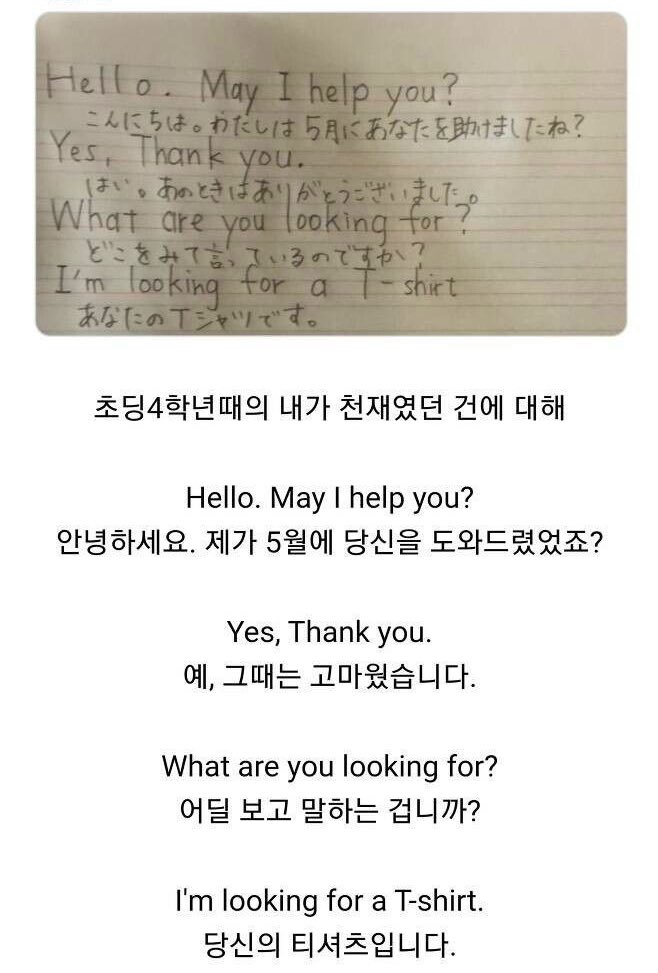 Hello. May I help you?
こんにちは。わたしは5月にあなたを助けましたね?
Yes, Thank you.
はい。あのときはありがとうございました。
What are you looking for?
どこをみて言っているのですか?
I'm looking for a T-shirt
あなたのTシャツです。
초딩4학년때의 내가 천재였던 건에 대해
Hello. May I help you?
안녕하세요. 제가 5월에 당신을 도와드렸었죠?
Yes, Thank you.
예, 그때는 고마웠습니다.
What are you looking for?
어딜 보고 말하는 겁니까?
I'm looking for a T-shirt.
당신의 티셔츠입니다.